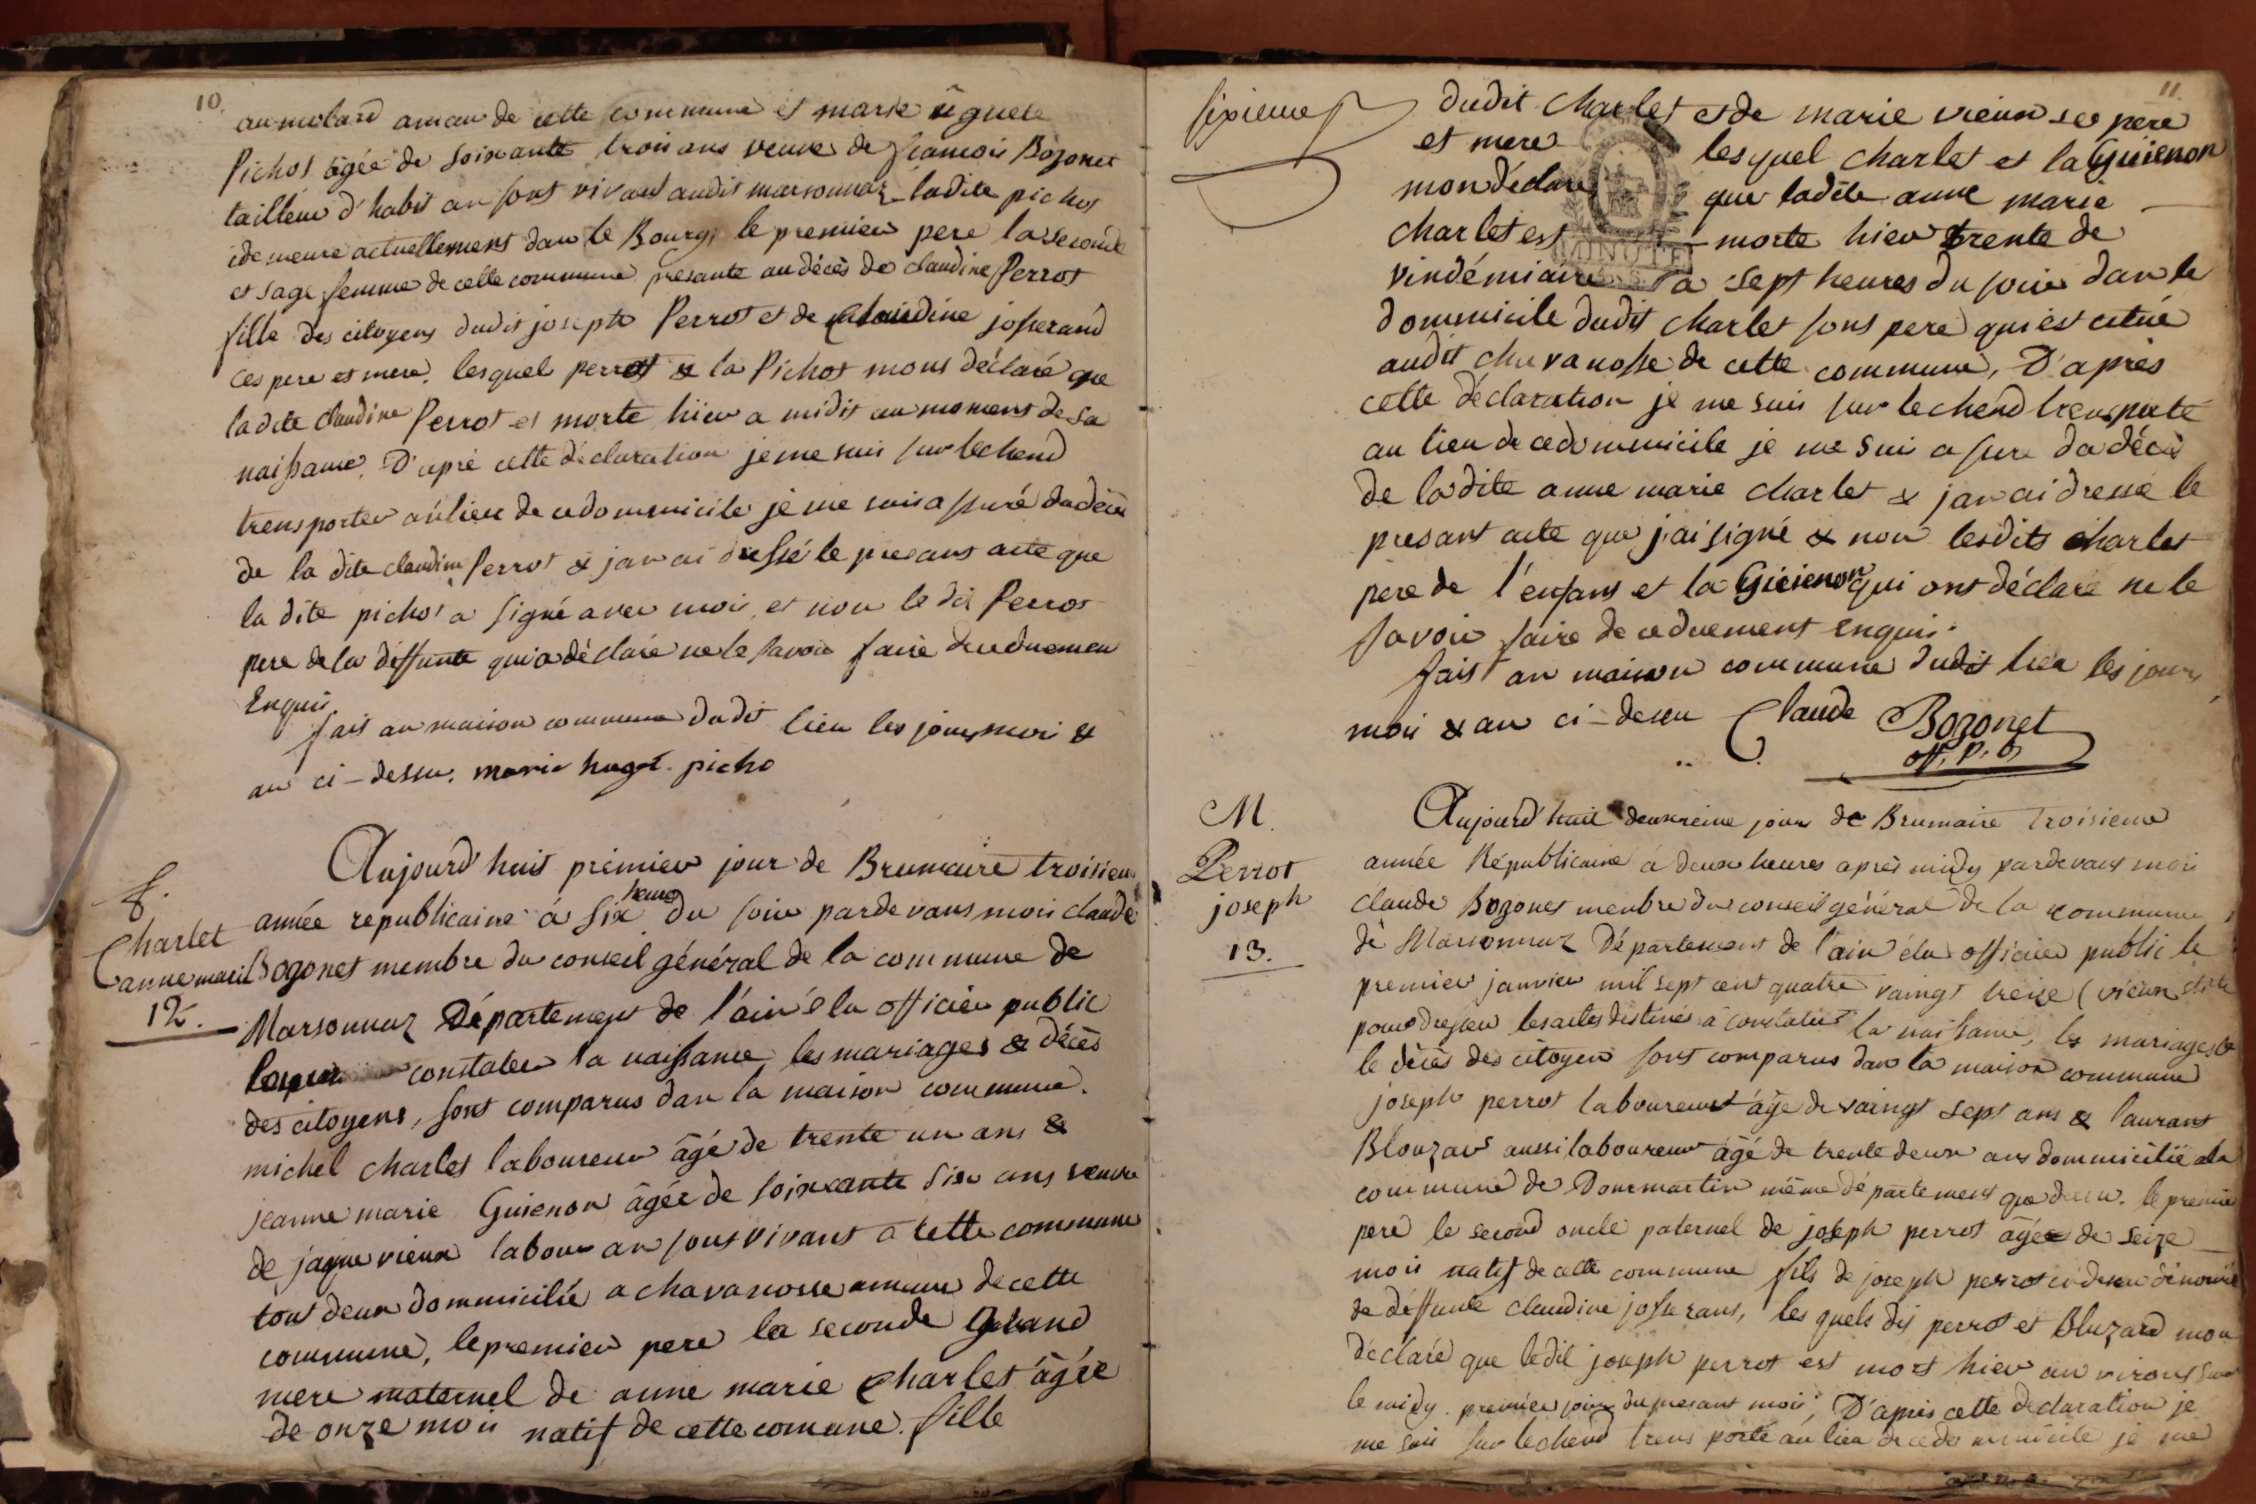 10.
au molard amau de cette commune et marie uguete
Pichot âgée de soixante trois ans veuve de francois Bozonet
tailleur d'habit an sont vivant audit marsonnaz ladite pichot
demeure actuellement dan le Bourg, le premier pere la seconde
et sage femme de cette commune presante au décès de claudine Perrot
fille des citoyens dudit joseph Perrot et de Claudine josserand
ces pere et mere, lesquel perrot & la Pichot mons déclaré que
ladite claudine Perrot et morte hier a midit au moment de sa
naissance. D'apré cette déclaration je me suis sur lechend
transporter au lieu de ce dommicile je me suis assuré du décès
de la dite claudine Perrot & jan ai dressé le presant acte que
la dite pichot a signé avec moi, et non le dit Perrot
pere de la deffunte qui a déclaré ne le savoir faire de ce duemen
Enquis.
fait an maison commune dudit lieu les jour moi &
an ci-dessu. marie huget picho
f.
Charlet
anne marie
12.
Aujourd'huit premier jour de Brumaire troisieme
année republicaine à six heure du soir pardevant moi claude
Bozonet membre du conseil général de la commune de
Marsonnaz Département de l'ain élu officier public
constater la naissance les mariages & décès
des citoyens, sont comparus dan la maison commune.
michel charlet laboureur âgé de trente un ans &
jeanne marie Guienon âgée de soixante six ans veuve
de jaque vieux labour an sont vivant a cette commune
tout deux dommicilié a chavanosse amau de cette
commune, le premier pere la seconde Grand
mere maternel de anne marie Charlet âgée
de onze moi natif de cette comune. fille
11.
sixieme
dudit Charlet et de marie vieux ses pere
et mere lesquel Charlet et la Guienon
mon déclaré que ladite anne marie
charlet est morte hier trente de
vindémiaire a sept heures du soir dan le
dommicile dudit charlet sons pere qui est citué
audit chavanosse de cette commune, D'après
cette déclaration je me suis sur le chend transporté
au lieu de ce dommicile je me suis assure du décès
de la dite anne marie charlet & jan ai dressé le
presant acte que j'ai signé & non lesdits charlet
pere de l'enfant et la Guienon qui ont déclaré ne le
savoir faire de ce duement Enquis.
fait an maison commune dudit lieu les jour,
moi & an ci-dessu Claude Bozonet
off. p.
MINUTE
M.
Perrot
joseph
13.
Aujourd'huit deuxieme jour de Brumaire troisieme
année Républicaine à deux heures après midy pardevant moi
claude Bozonet menbre du conseil général de la commune
de Marsonnaz Département de l'ain élu officier public le
premier janvier mil sept cent quatre vaingt treize (vieux stile
pour dresser les actes destinés à constater la naissance, les mariages &
le décès des citoyen sont comparus dan la maison commune
joseph perrot laboureur âgé de vaingt sept ans & laurant
Blouzar aussi laboureur âgé de trente deux ans dommicilié a la
commune de Dommartin même département que dessu. le premier
pere le second oncle paternel de joseph perrot âgée de seize
mois natif de cette commune fils de joseph perrot ci dessu dénomé
de deffunte claudine josserans, les quels dit perrot et Bluzard mon
déclaré que ledit joseph perrot est mort hier an viront sur
le midy. premier jour du presant moi, D'après cette declaration je
me suis sur le chend trens porté au lieu de ce dommicile je me